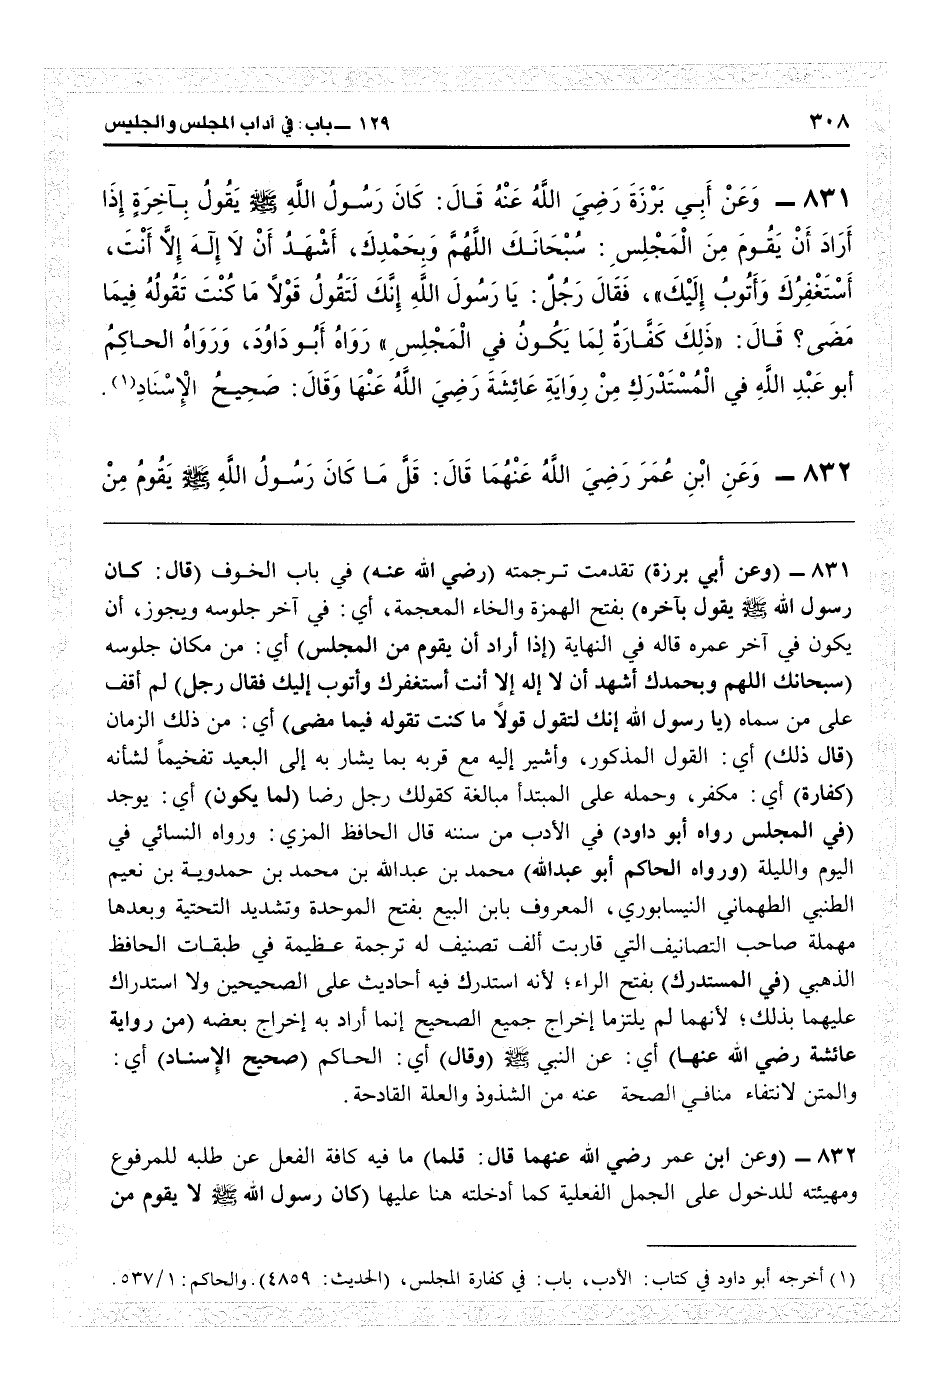 ٣٠٨ ١٢٩ ــ باب: في آداب المجلس والجليس
٨٣١ ــ وَعَنْ أَبِي بَرْزَةَ رَضِيَ اللَّهُ عَنْهُ قَالَ: كَانَ رَسُولُ اللَّهِ ﷺ يَقُولُ بِآخِرَةٍ إِذَا
أَرَادَ أَنْ يَقُومَ مِنَ الْمَجْلِسِ: سُبْحَانَكَ اللَّهُمَّ وَبِحَمْدِكَ، أَشْهَدُ أَنْ لَا إِلَهَ إِلَّا أَنْتَ،
أَسْتَغْفِرُكَ وَأَتُوبُ إِلَيْكَ»، فَقَالَ رَجُلٌ: يَا رَسُولَ اللَّهِ إِنَّكَ لَتَقُولُ قَوْلاً مَا كُنْتَ تَقُولُهُ فِيمَا
مَضَى؟ قَالَ: «ذَلِكَ كَفَّارَةٌ لِمَا يَكُونُ في الْمَجْلِسِ» رَوَاهُ أَبُو دَاوُدَ، وَرَوَاهُ الحاكِمُ
أبو عَبْدِ اللَّهِ في الْمُسْتَدْرَكِ مِنْ رِوَايَةِ عَائِشَةَ رَضِيَ اللَّهُ عَنْهَا وَقَالَ: صَحِيحُ الْإِسْنَادِ(١).
٨٣٢ ــ وَعَنِ ابْنِ عُمَرَ رَضِيَ اللَّهُ عَنْهُمَا قَالَ: قَلَّ مَا كَانَ رَسُولُ اللَّهِ ﷺ يَقُومُ مِنْ
٨٣١ ــ (وعن أبي برزة) تقدمت ترجمته (رضي الله عنه) في باب الخوف (قال: كان
رسول الله ﷺ يقول بآخره) بفتح الهمزة والخاء المعجمة، أي: في آخر جلوسه ويجوز، أن
يكون في آخر عمره قاله في النهاية (إذا أراد أن يقوم من المجلس) أي: من مكان جلوسه
(سبحانك اللهم وبحمدك أشهد أن لا إله إلا أنت أستغفرك وأتوب إليك فقال رجل) لم أقف
على من سماه (يا رسول الله إنك لتقول قولاً ما كنت تقوله فيما مضى) أي: من ذلك الزمان
(قال ذلك) أي: القول المذكور، وأشير إليه مع قربه بما يشار به إلى البعيد تفخيماً لشأنه
(كفارة) أي: مكفر، وحمله على المبتدأ مبالغة كقولك رجل رضا (لما يكون) أي: يوجد
(في المجلس رواه أبو داود) في الأدب من سننه قال الحافظ المزي: ورواه النسائي في
اليوم والليلة (ورواه الحاكم أبو عبدالله) محمد بن عبدالله بن محمد بن حمدوية بن نعيم
الطنبي الطهماني النيسابوري، المعروف بابن البيع بفتح الموحدة وتشديد التحتية وبعدها
مهملة صاحب التصانيف التي قاربت ألف تصنيف له ترجمة عظيمة في طبقات الحافظ
الذهبي (في المستدرك) بفتح الراء؛ لأنه استدرك فيه أحاديث على الصحيحين ولا استدراك
عليهما بذلك؛ لأنهما لم يلتزما إخراج جميع الصحيح إنما أراد به إخراج بعضه (من رواية
عائشة رضي الله عنها) أي: عن النبي ﷺ (وقال) أي: الحاكم (صحيح الإسناد) أي:
والمتن لانتفاء منافي الصحة عنه من الشذوذ والعلة القادحة.
٨٣٢ ــ (وعن ابن عمر رضي الله عنهما قال: قلما) ما فيه كافة الفعل عن طلبه للمرفوع
ومهيئته للدخول على الجمل الفعلية كما أدخلته هنا عليها (كان رسول الله ﷺ لا يقوم من
(١) أخرجه أبو داود في كتاب: الأدب، باب: في كفارة المجلس، (الحديث: ٤٨٥٩). والحاكم: ٥٣٧/١.